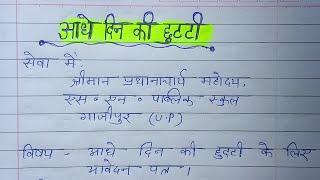 आधे दिन की छुट्टी
सेवा में,
श्रीमान प्रधानाचार्य महोदय,
एस॰ एन॰ पब्लिक स्कूल
गाजीपुर (U.P)
विषय - आधे दिन की छुट्टी के लिए
आवेदन पत्र।